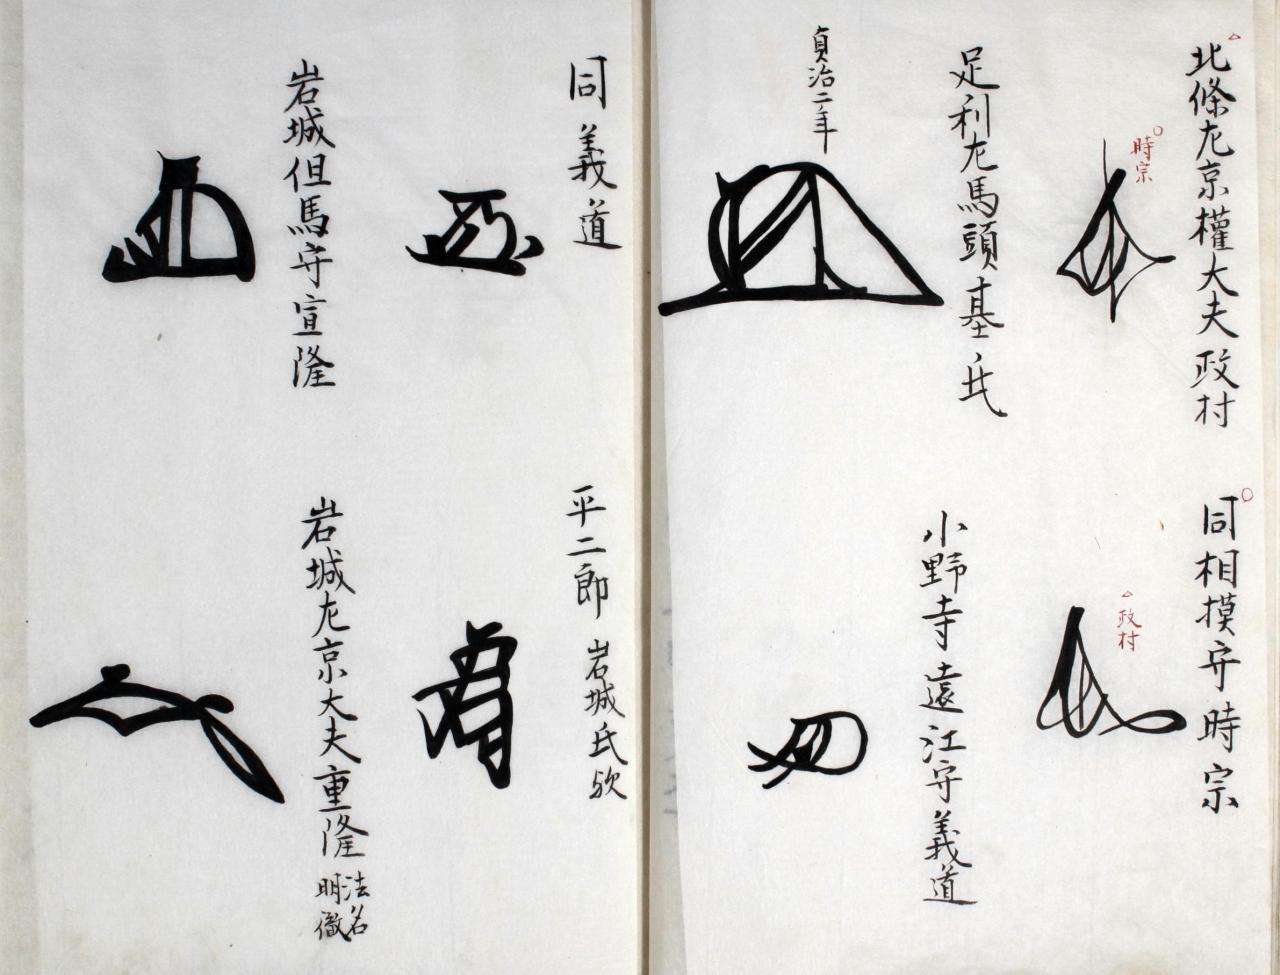 北條左京權大夫政村
時宗
同相摸守時宗
政村
足利左馬頭基氏
貞治二年
小野寺遠江守義道
同義道
平二郎 岩城氏欤
岩城但馬守宣隆
岩城左京大夫重隆
法名
明徹